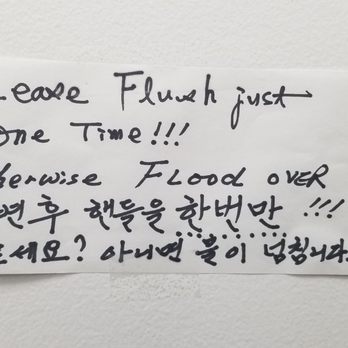 lease Flush just
One Time!!!
herwise FLOOD OVER
변 후 핸들을 한번만 !!!
세요? 아니면 물이 넘칩니다.